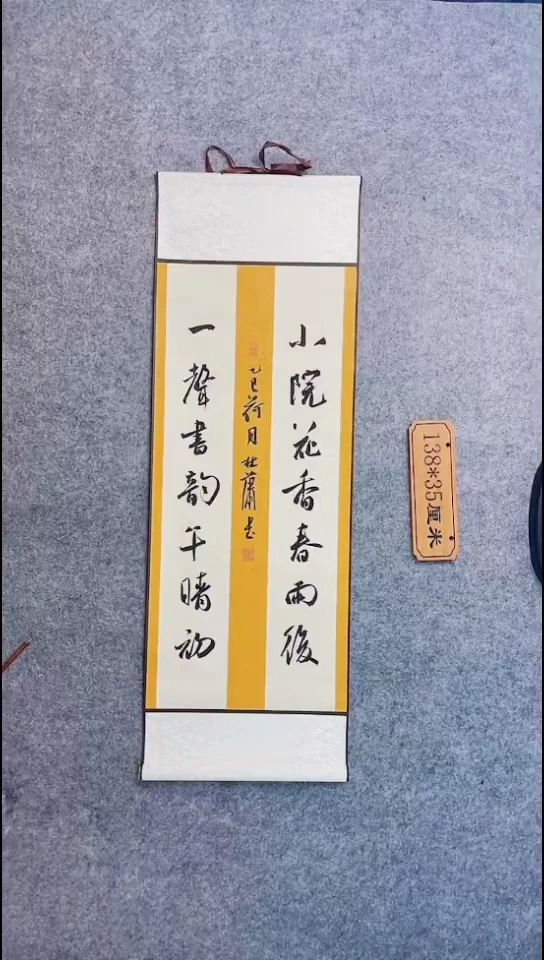 小院花香春雨後
乙巳荷月杜蕭書
一聲書韵午晴初
138*35厘米